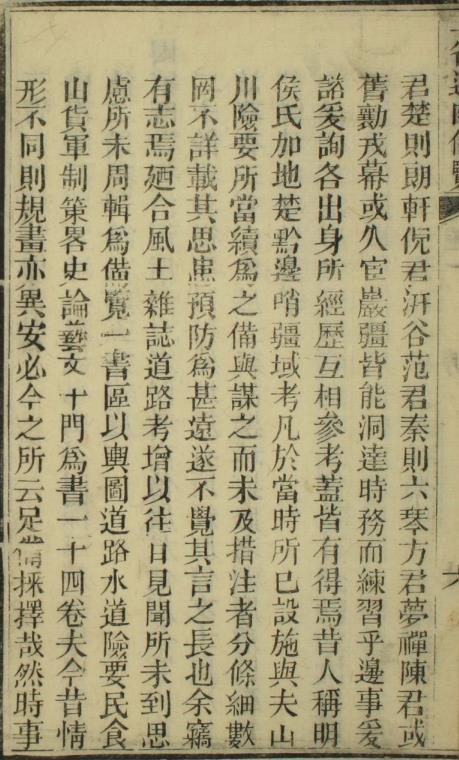 君楚則朗軒倪君汧谷范君秦則六琴方君夢禪陳君或
舊勷戎幕或久宦巖疆皆能洞達時務而練習乎邊事爰
諮爰詢各出身所經歷互相參考蓋皆有得焉昔人稱明
侯氏加地楚黔邊哨疆域考凡於當時所已設施與夫山
川險要所當續爲之備與謀之而未及措注者分條細數
罔不詳載其思患預防爲甚遠遂不覺其言之長也余竊
有志焉廼合風土雜誌道路考增以往日見聞所未到思
慮所未周輯爲備覽一書區以輿圖道路水道險要民食
山貨軍制策畧史論藝文十門爲書一十四卷夫今昔情
形不同則規畫亦異安必今之所云足備採擇哉然時事
六